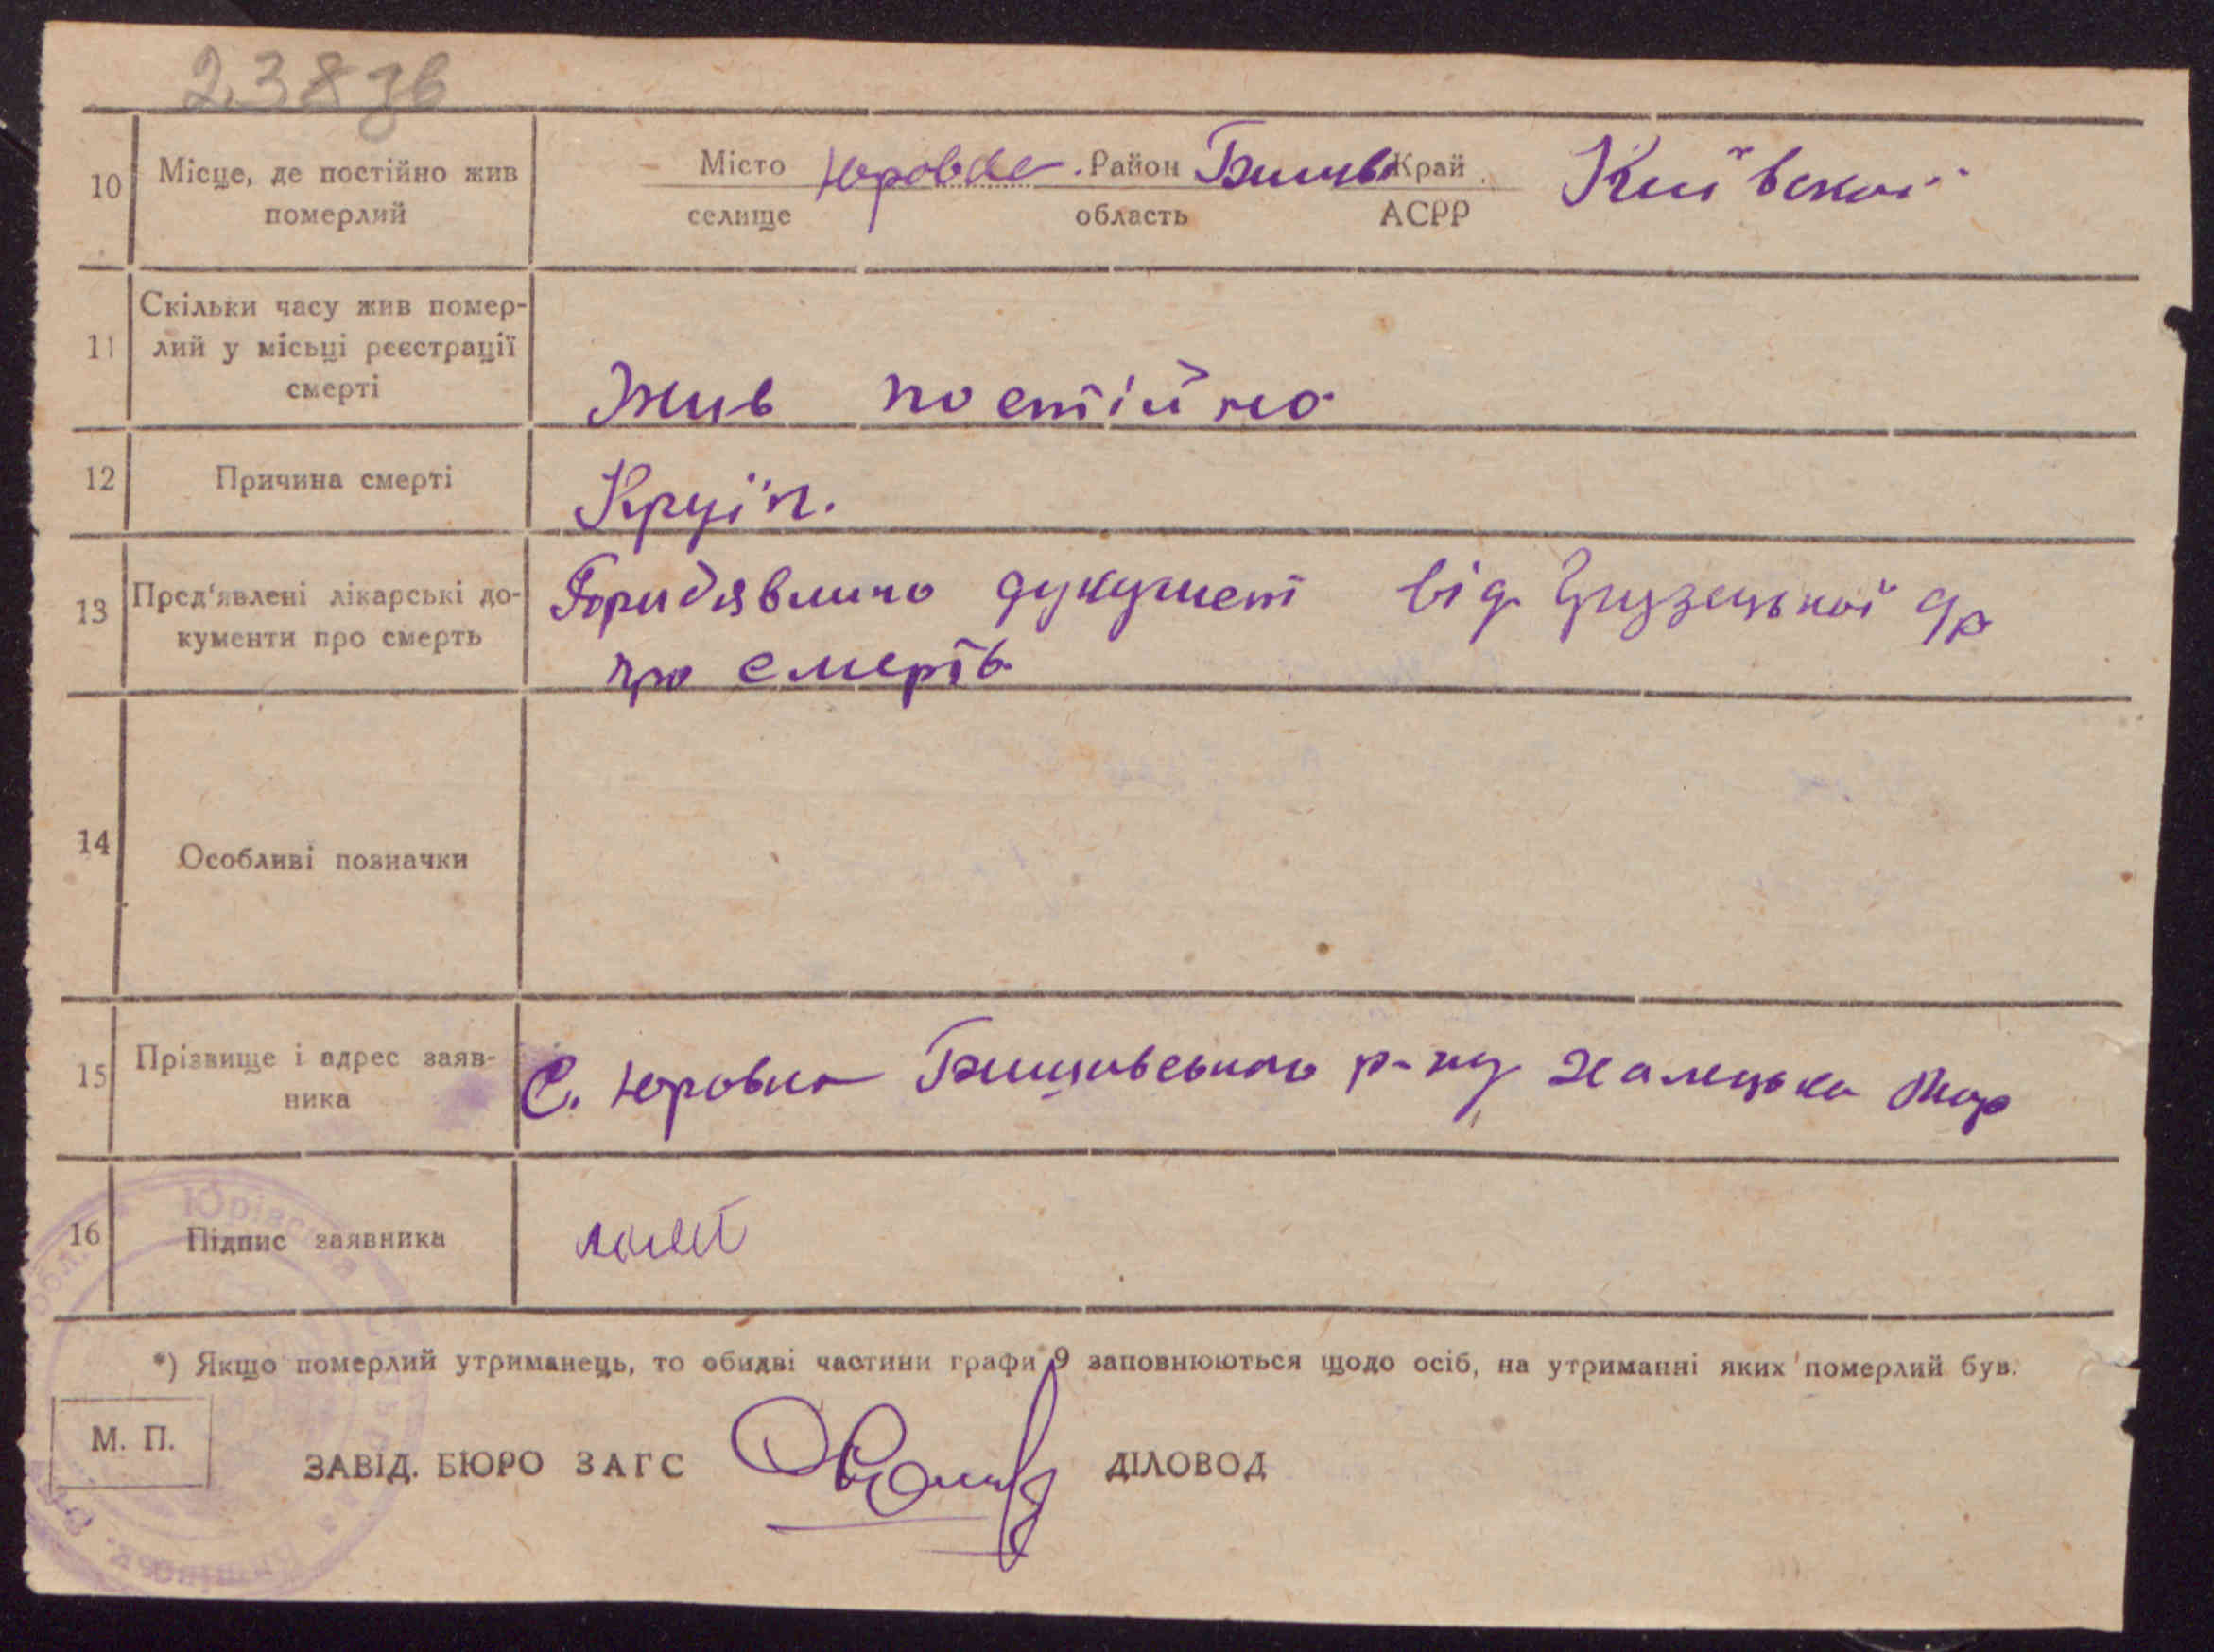 238 зв
10 Місце, де постійно жив Місто Юровка Район Бишів Край Київской
померлий селище область АСРР
11 Скільки часу жив помер-
лий у місьці реєстрації
смерті Жив постійно
12 Причина смерті Круіп.
13 Пред'явлені лікарські до- дукумент від Грузецької др
кументи про смерть про смерть
14 Особливі позначки
15 Прізвище і адрес заяв- С. Юровка Бишивського р-ну Халецька Мар
ника
16 Підпис заявника
*) Якщо померлий утриманець, то обидві частини графи 9 заповнюються щодо осіб, на утриманні яких померлий був.
М. П.
ЗАВІД. БЮРО ЗАГС ДІЛОВОД
Юрівська
обл.